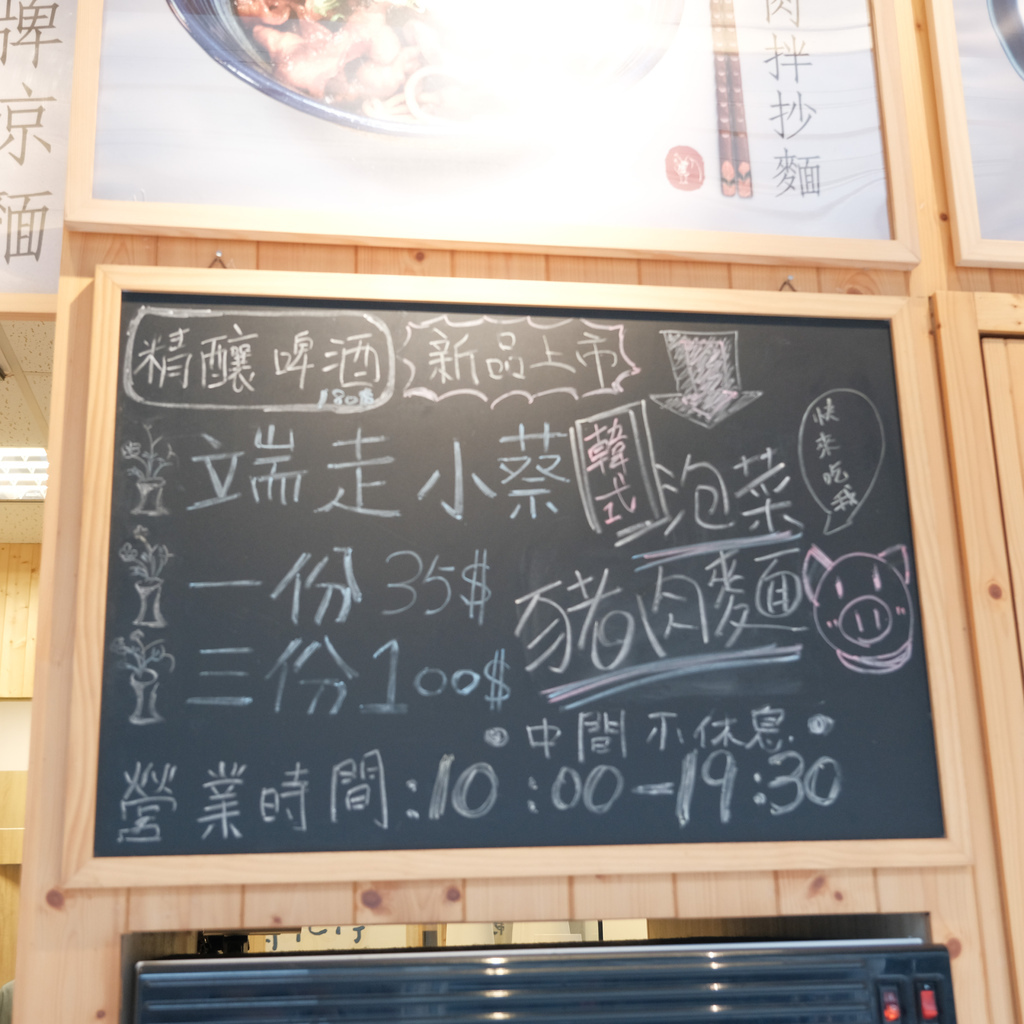 牌涼麵
肉拌抄麵
精釀啤酒
180元
新品上市
端走小蔡
韓式
泡菜
快來吃我
一份 35$
豬肉麵
三份 100$
中間不休息
營業時間:10:00-19:30